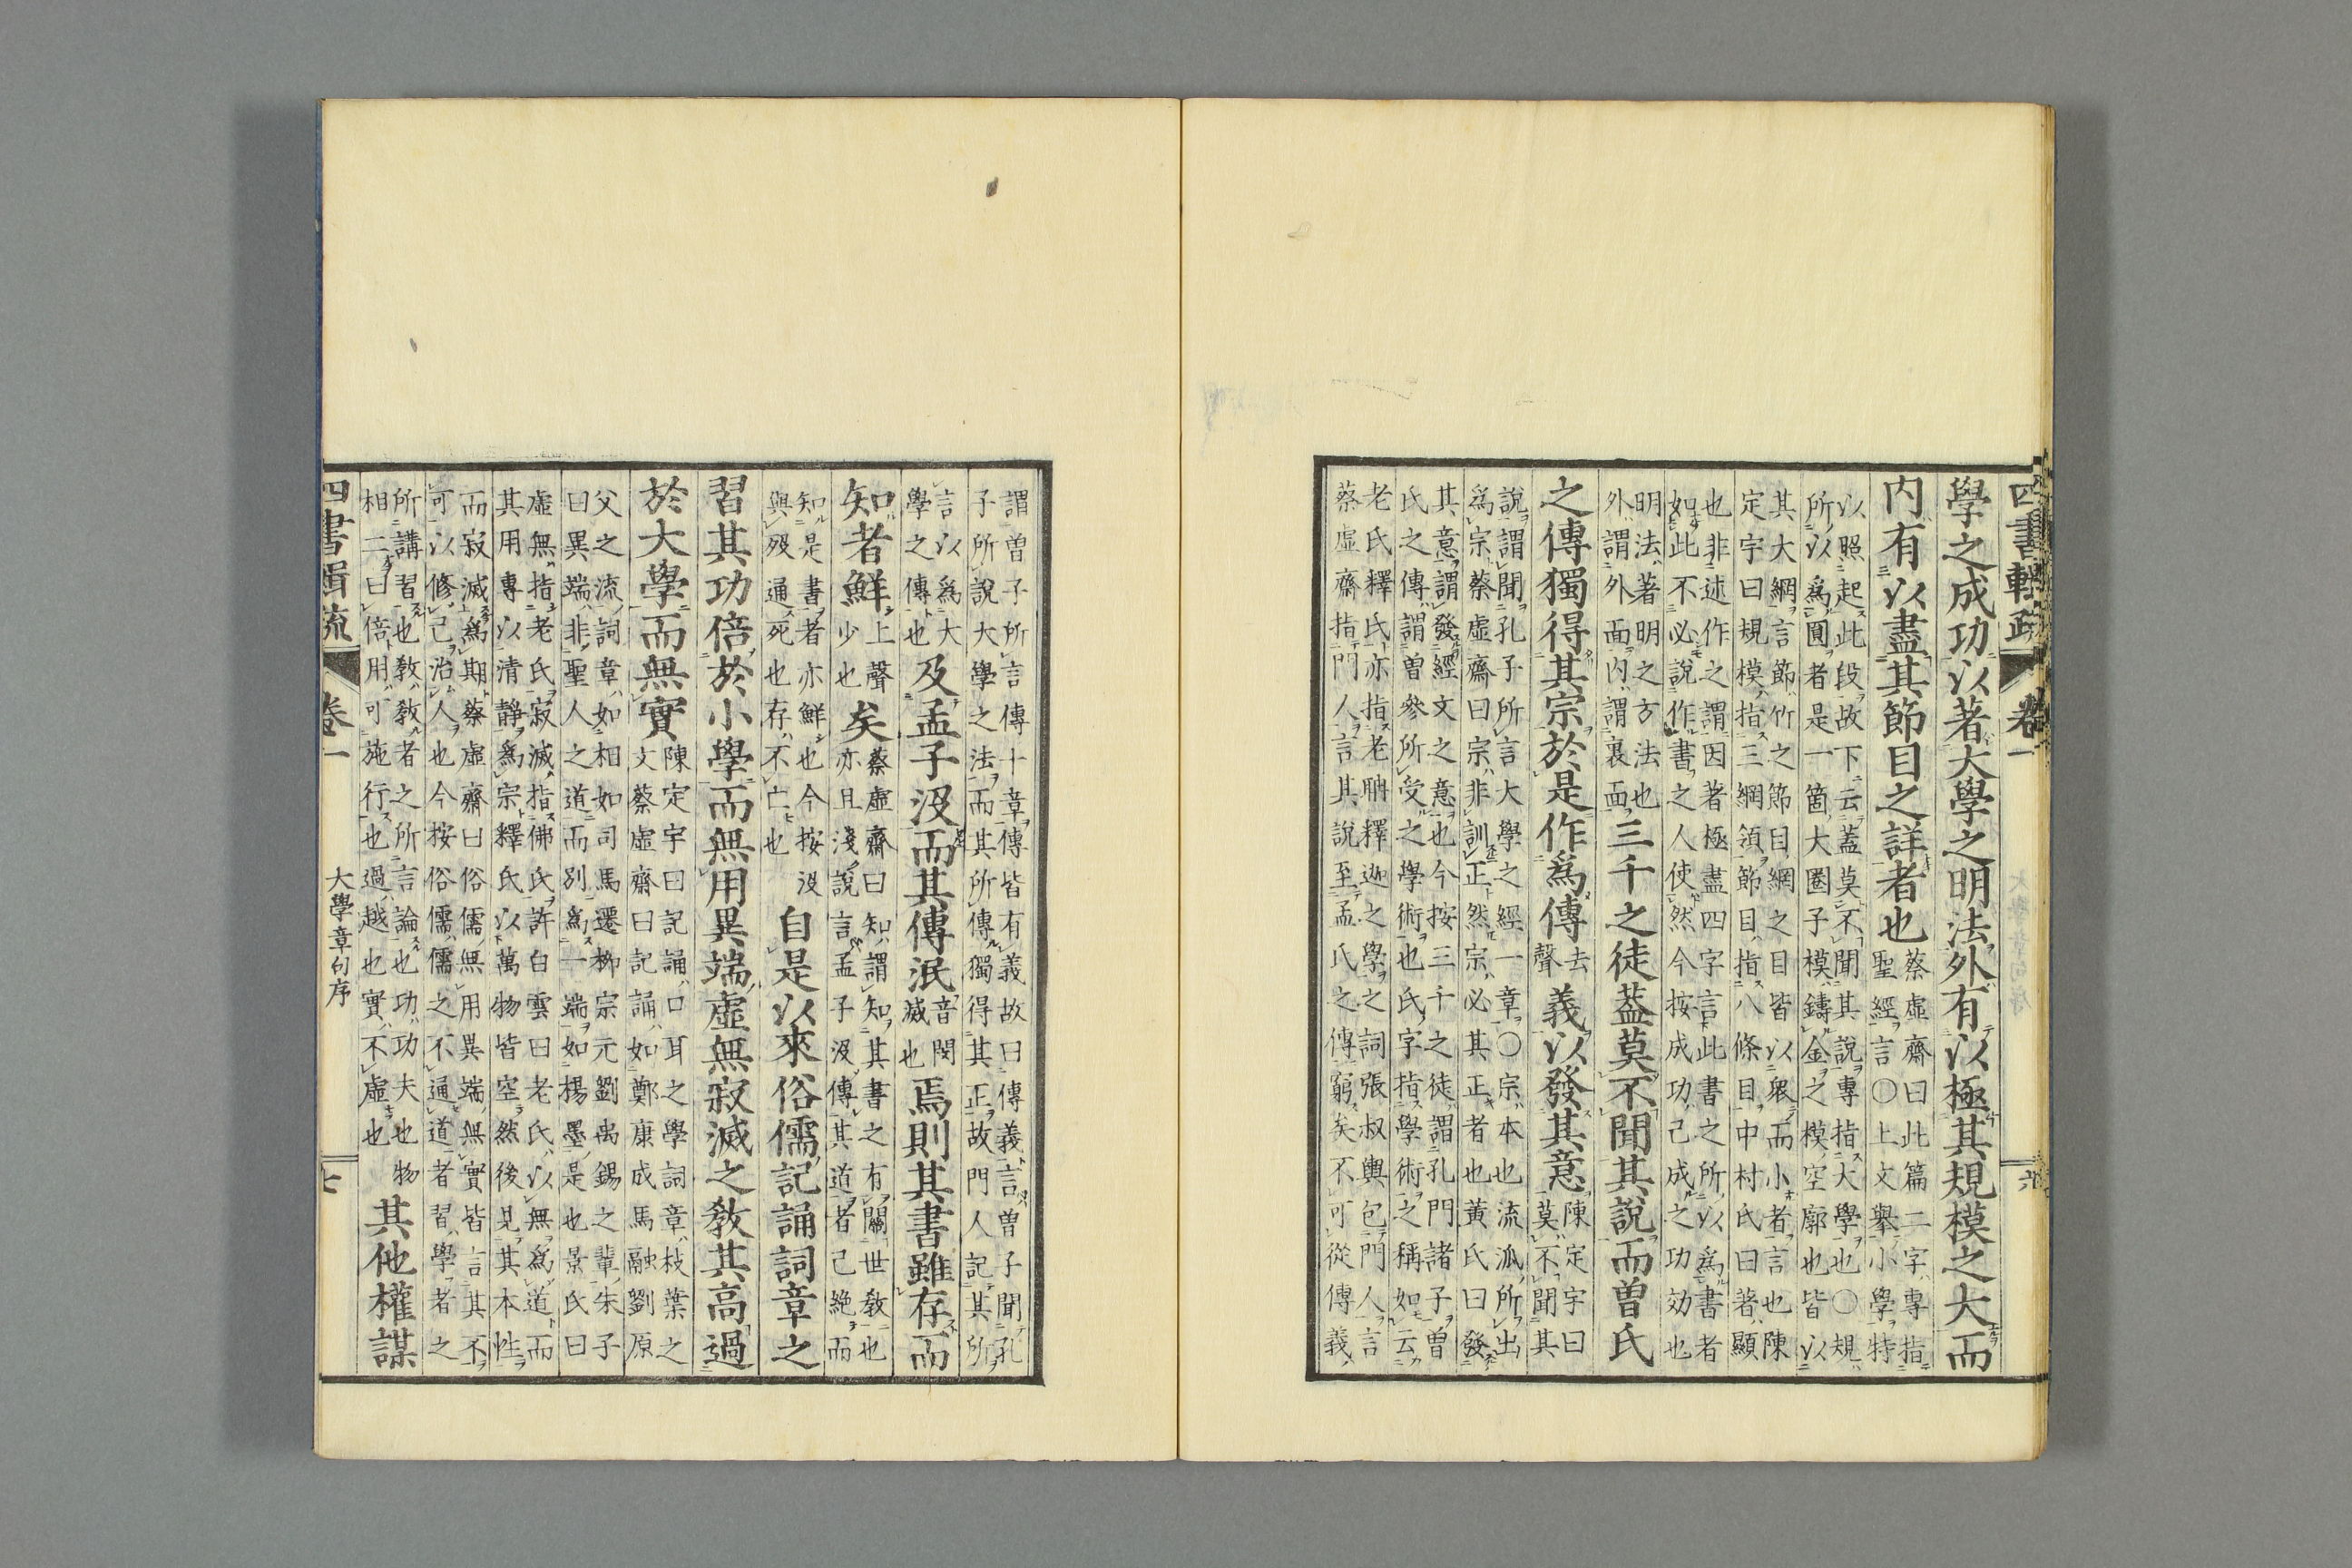 四書輯疏 卷一 六
學之成功以著大學之明法外有以極其規模之大而
内有以盡其節目之詳者也
蔡虛齋曰此篇二字專指
聖經言〇上文擧小學特
以照起此段故下云蓋莫不聞其說專指大學也〇規
所以爲圓者是一箇大圈子模鑄金之模空廓也皆以
其大綱言節竹之節目網之目皆以衆而小者言也陳
定宇曰規模指三綱領節目指八條目中村氏曰著顯
也非述作之謂因著極盡四字言此書之所以爲書者
如此不必說作書之人使然今按成功己成之功効也
明法著明之方法也
外謂外面内謂裏面
三千之徒葢莫不聞其說而曽氏
之傳獨得其宗於是作爲傳
去
聲
義以發其意
陳定宇曰
莫不聞其
說謂聞孔子所言大學之經一章〇宗本也流派所出
爲宗蔡虛齋曰宗非訓正然宗必其正者也黃氏曰發
其意謂發經文之意也今按三千之徒謂孔門諸子曽
氏之傳謂曽參所受之學術也氏字指學術之稱如云
老氏釋氏亦指老聃釋迦之學之詞張叔輿包門人言
蔡虛齋指門人言其說至孟氏之傳窮矣不可從傳義
謂曽子所言傳十章傳皆有義故曰傳義言曽子聞孔
子所說大學之法而其所傳獨得其正故門人記其所
言以爲大
學之傳也
及孟子沒而其傳泯
音閔
滅也
焉則其書雖存而
知者鮮
上聲
少也
矣
蔡虛齋曰知謂知其書之有關世敎也
亦且淺說言孟子沒傳其道者己絶而
知是書者亦鮮也今按沒
與歿通死也存不亡也
自是以來俗儒記誦詞章之
習其功倍於小學而無用異端虛無寂滅之敎其高過
於大學而無實
陳定宇曰記誦口耳之學詞章枝葉之
文蔡虛齋曰記誦如鄭康成馬融劉原
父之流詞章如相如司馬遷柳宗元劉禹錫之輩朱子
曰異端非聖人之道而別爲一端如楊墨是也景氏曰
虛無指老氏寂滅指佛氏許白雲曰老氏以無爲道而
其用專以清靜爲宗釋氏以萬物皆空然後見其本性
而寂滅爲期蔡虛齋曰俗儒無用異端無實皆言其不
可以修己治人也今按俗儒儒之不通道者習學者之
所講習也敎敎者之所言論也功功夫也物
相二曰倍用可施行也過越也實不虛也
其他權謀
四書輯疏 卷一 大學章句序 七